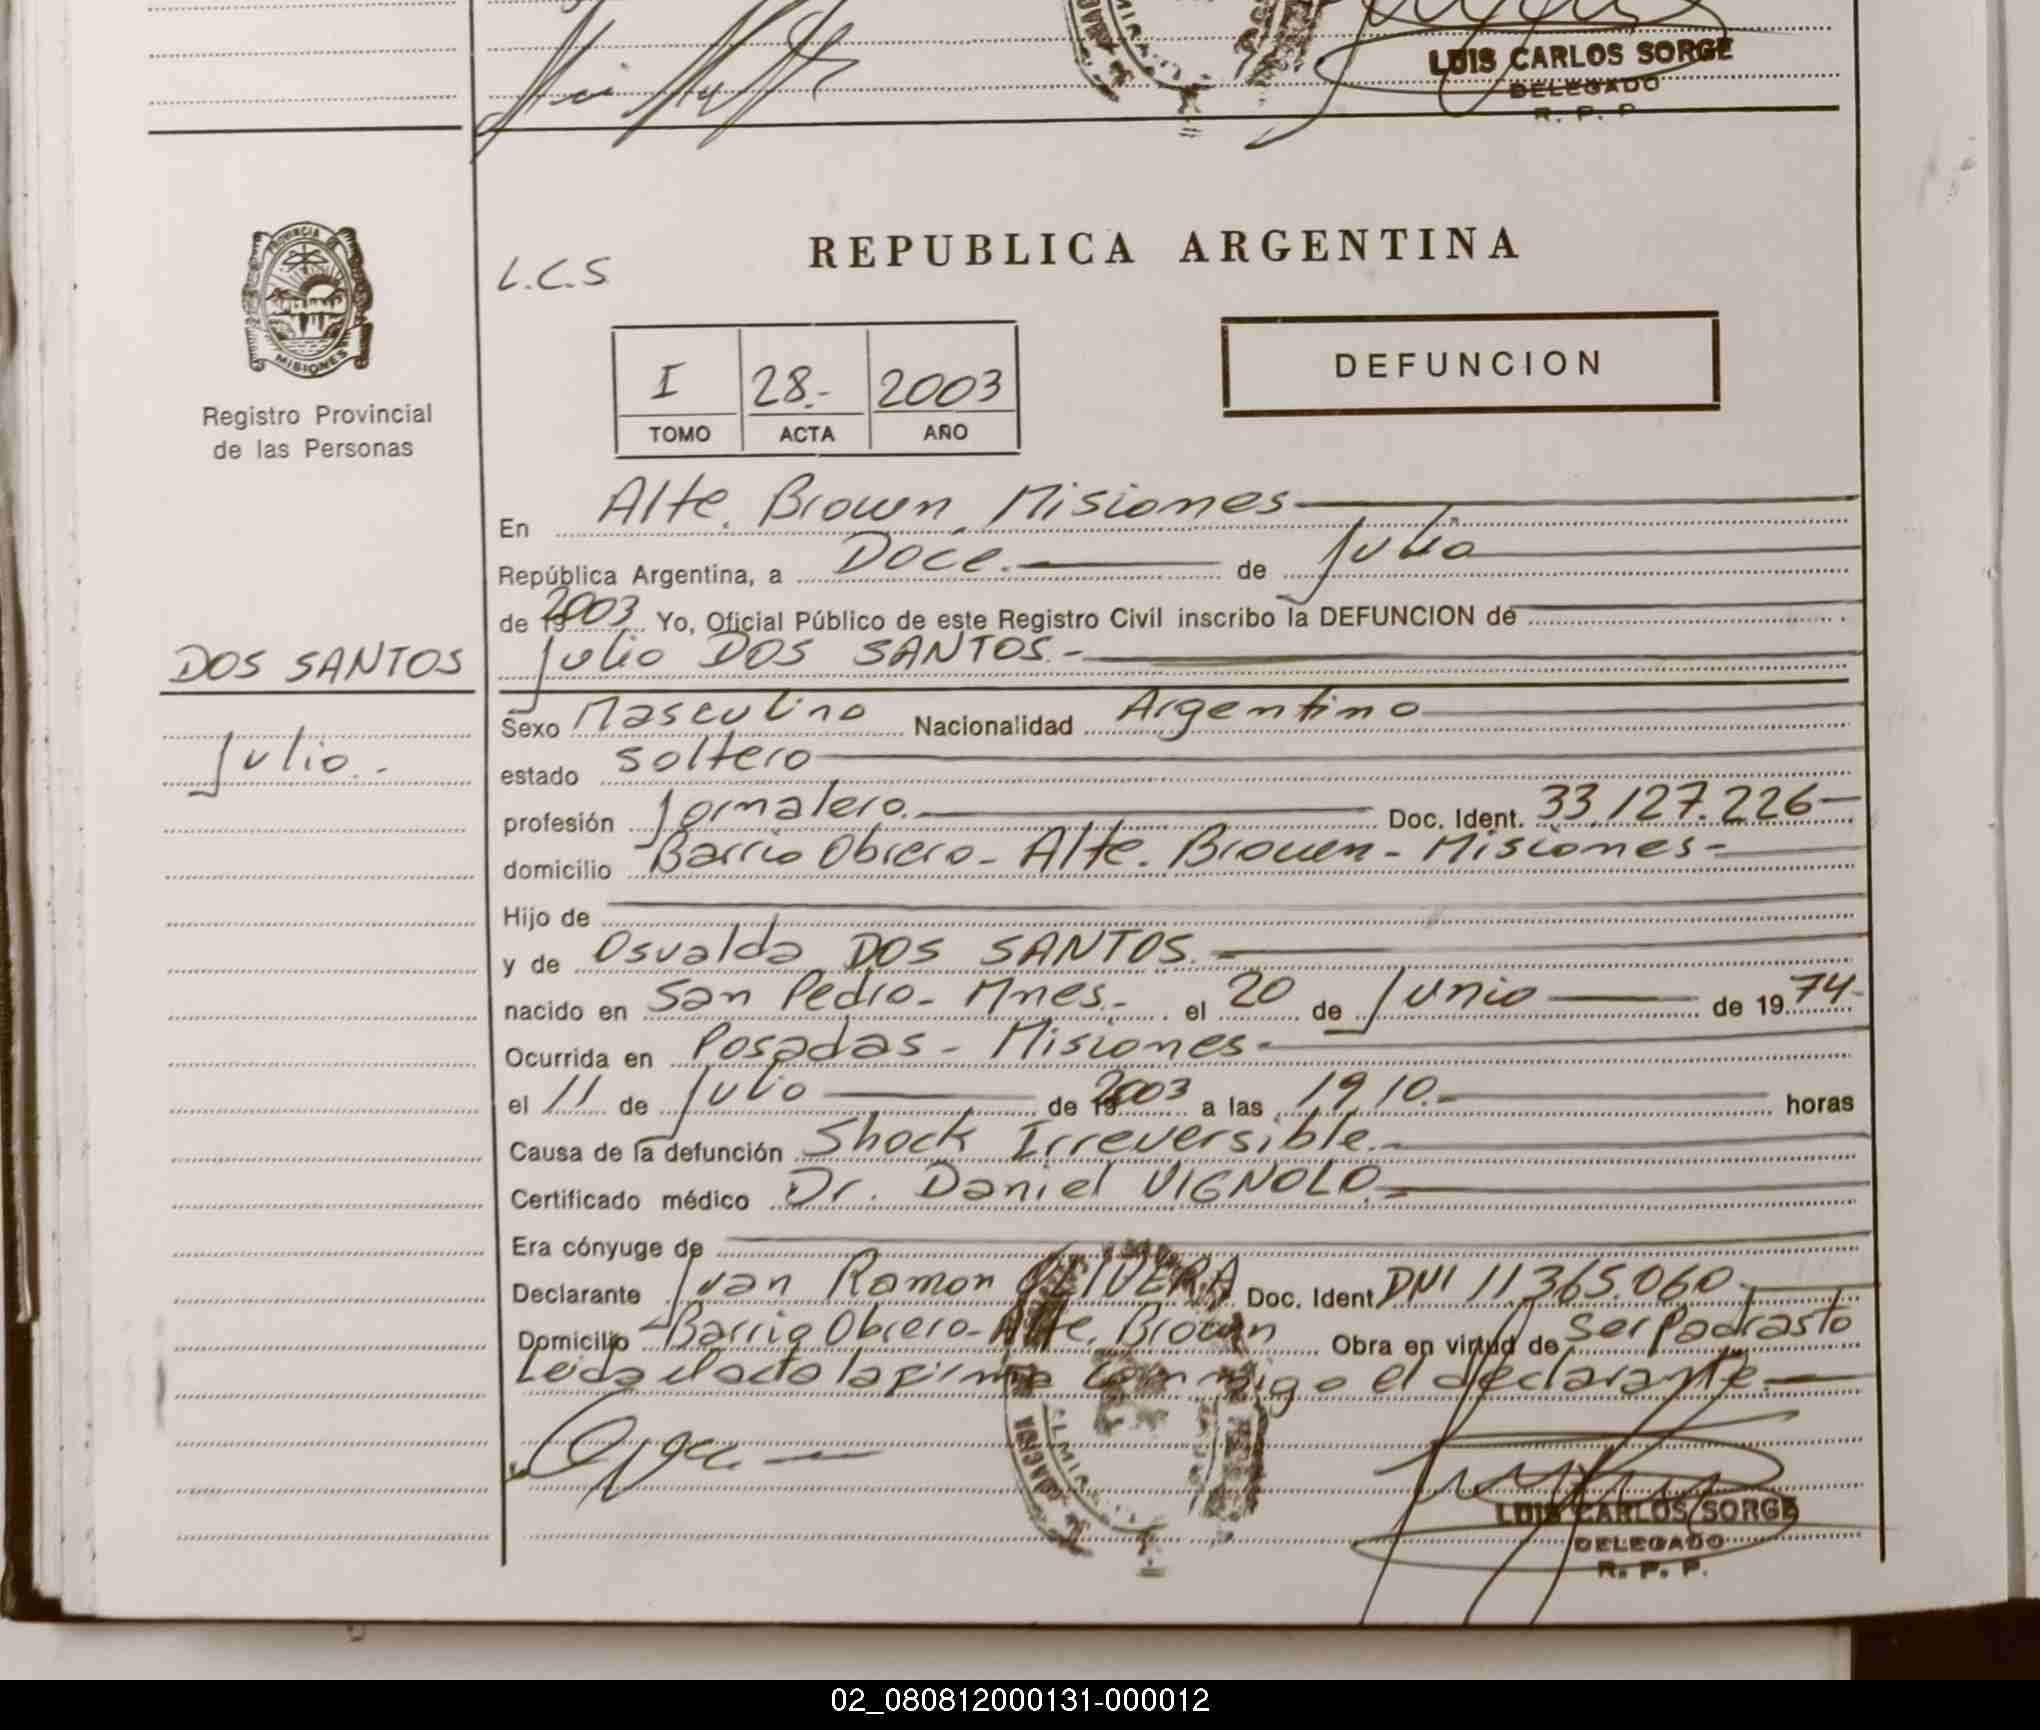 LUIS CARLOS SORGE
DELEGADO
R. P. P.
PROVINCIA DE
MISIONES
Registro Provincial
de las Personas
L.C.S
REPUBLICA ARGENTINA
I 28.- 2003
TOMO ACTA AÑO
DEFUNCION
En Alte. Brown, Misiones
República Argentina, a Doce. de Julio
de 19 2003 Yo, Oficial Público de este Registro Civil inscribo la DEFUNCION de
DOS SANTOS
Julio DOS SANTOS.-
Sexo Masculino Nacionalidad Argentino
Julio.-
estado soltero
profesión Jornalero. Doc. Ident. 33.127.226
domicilio Barrio Obrero - Alte. Brown - Misiones -
Hijo de
y de Osvalda DOS SANTOS.
nacido en San Pedro - Mnes. - el 20 de Junio de 19 74-
Ocurrida en Posadas - Misiones -
el 11 de Julio de 19 2003 a las 19,10.- horas
Causa de la defunción Shock Irreversible.-
Certificado médico Dr. Daniel VIGNOLO.-
Era cónyuge de
Declarante Juan Ramon OLIVERA Doc. Ident DNI 11.365.060.-
Domicilio Barrio Obrero - Alte. Brown Obra en virtud de ser padrasto
Leida el acta la firma conmigo el declarante.-
LUIS CARLOS SORGE
DELEGADO
R. P. P.
02_080812000131-000012